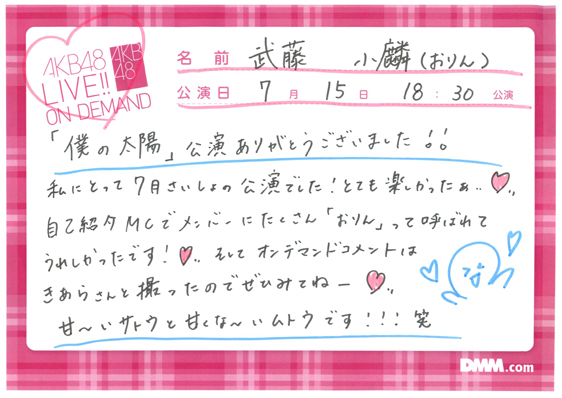 AKB48
LIVE!!
ON DEMAND
AKB
48
名前 武藤 小麟(おりん)
公演日 7月 15日 18:30 公演
「僕の太陽」公演ありがとうございました!!
私にとって7月さいしょの公演でした!とても楽しかったぁ..♡..
自己紹介MCでメンバーにたくさん「おりん」って呼ばれて
うれしかったです!♡.. そして オンデマンドコメントは
きあらさんと撮ったのでぜひみてねー♡..
甘〜いサトウと甘くな〜いムトウです!!!笑
な
DMM.com